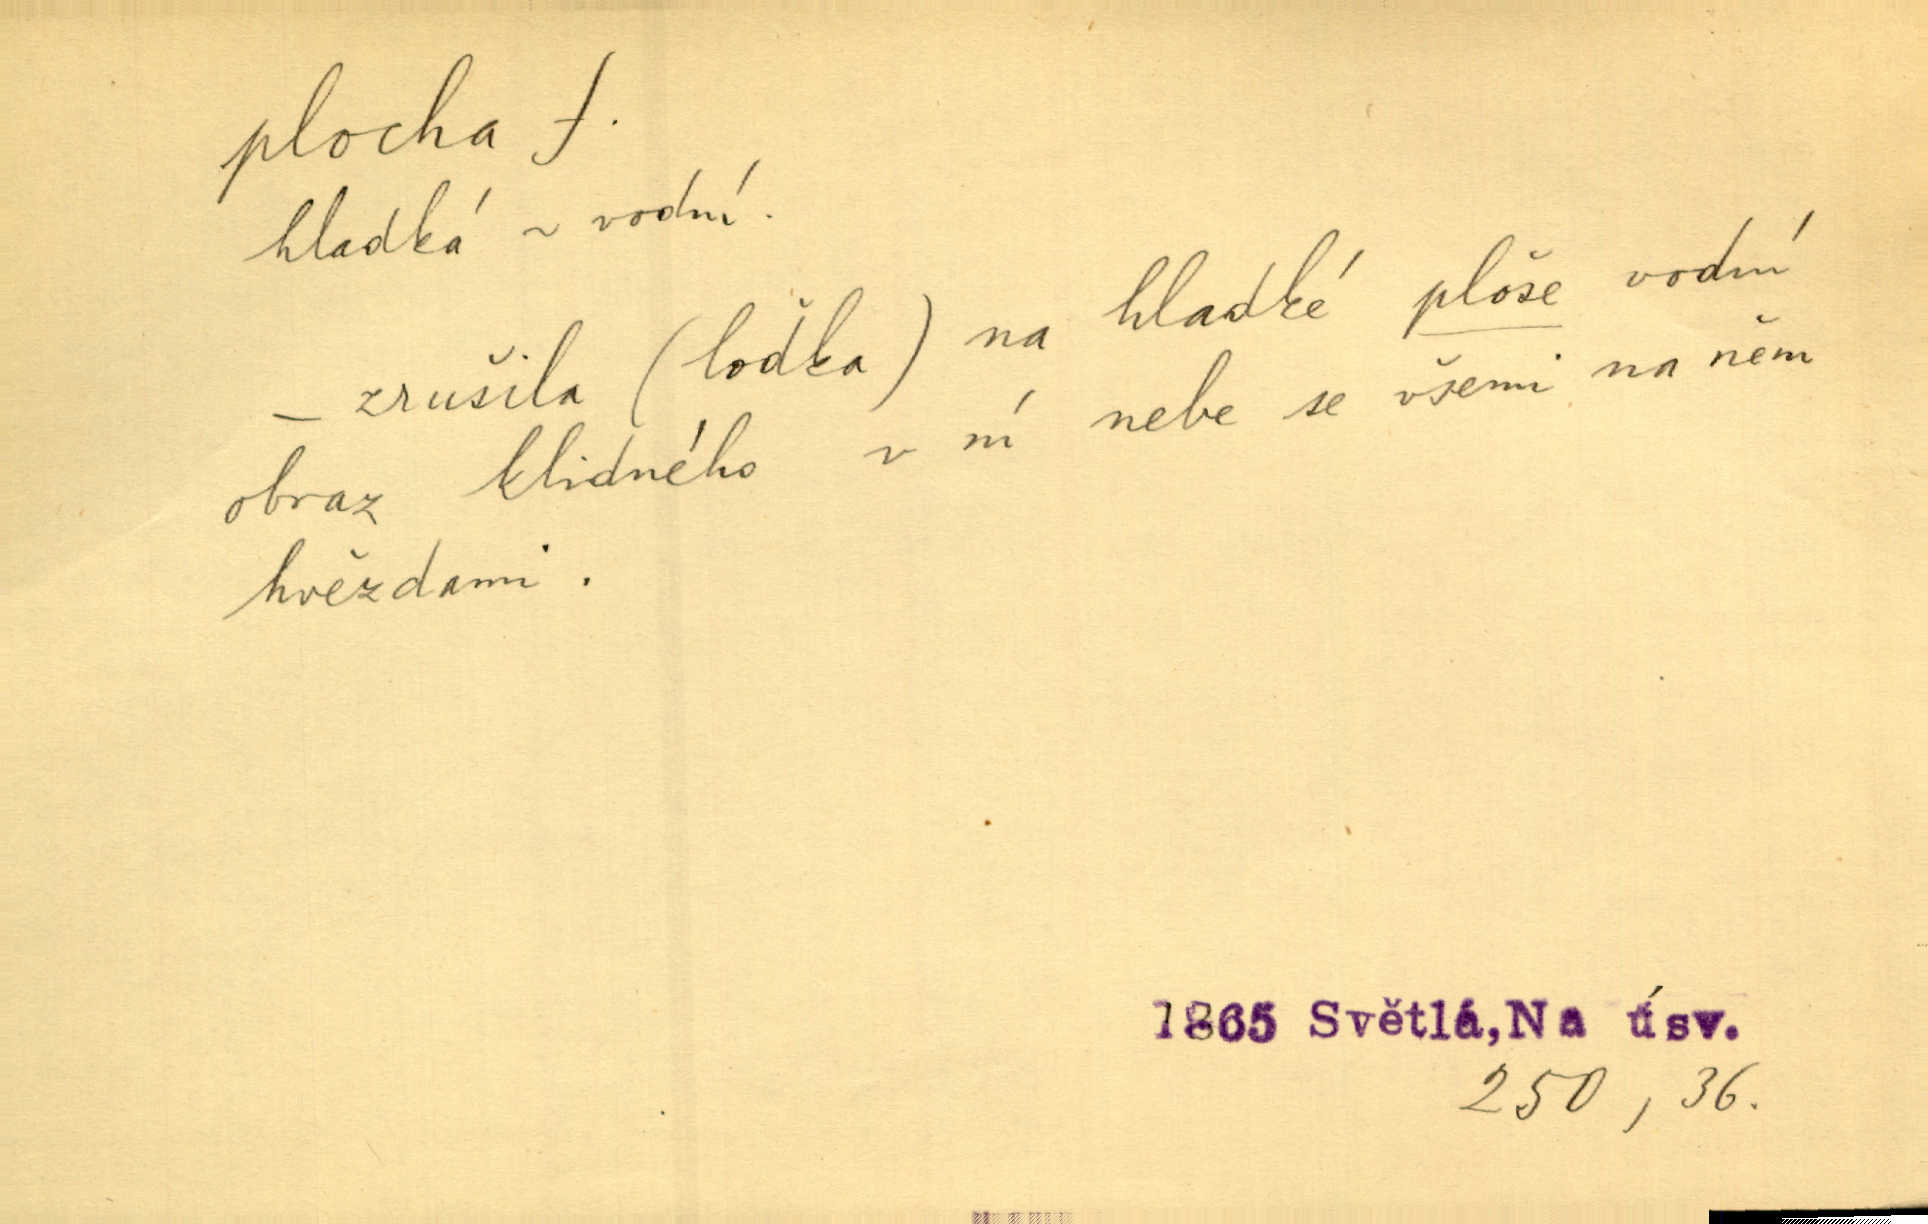 plocha f.
hladká ~ vodní.
– zrušila (loďka) na hladké ploše vodní
obraz klidného v ní nebe se všemi na něm
hvězdami.
1865 Světlá, Na úsv.
250, 36.